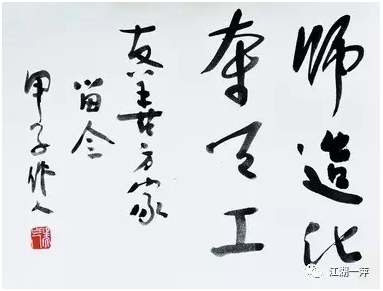 师造化
夺天工
方家
留念
甲子作人
江湖一萍